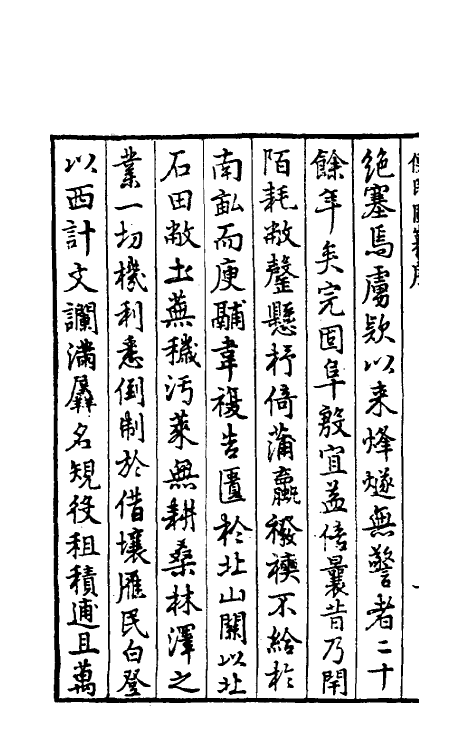 絶塞焉虜欵以来烽燧無警者二十
餘年矣完固阜殷宜益倍曩昔乃閈
陌耗敝罄懸杼倚蒲蠃襏襫不給於
南畝而庾鬴韋複告匱於北山關以北
石田敝土蕪穢汚萊無耕桑林澤之
業一切機利悉倒制於借壤雁民白登
以西計文讕滿羼名規役租積逋且萬